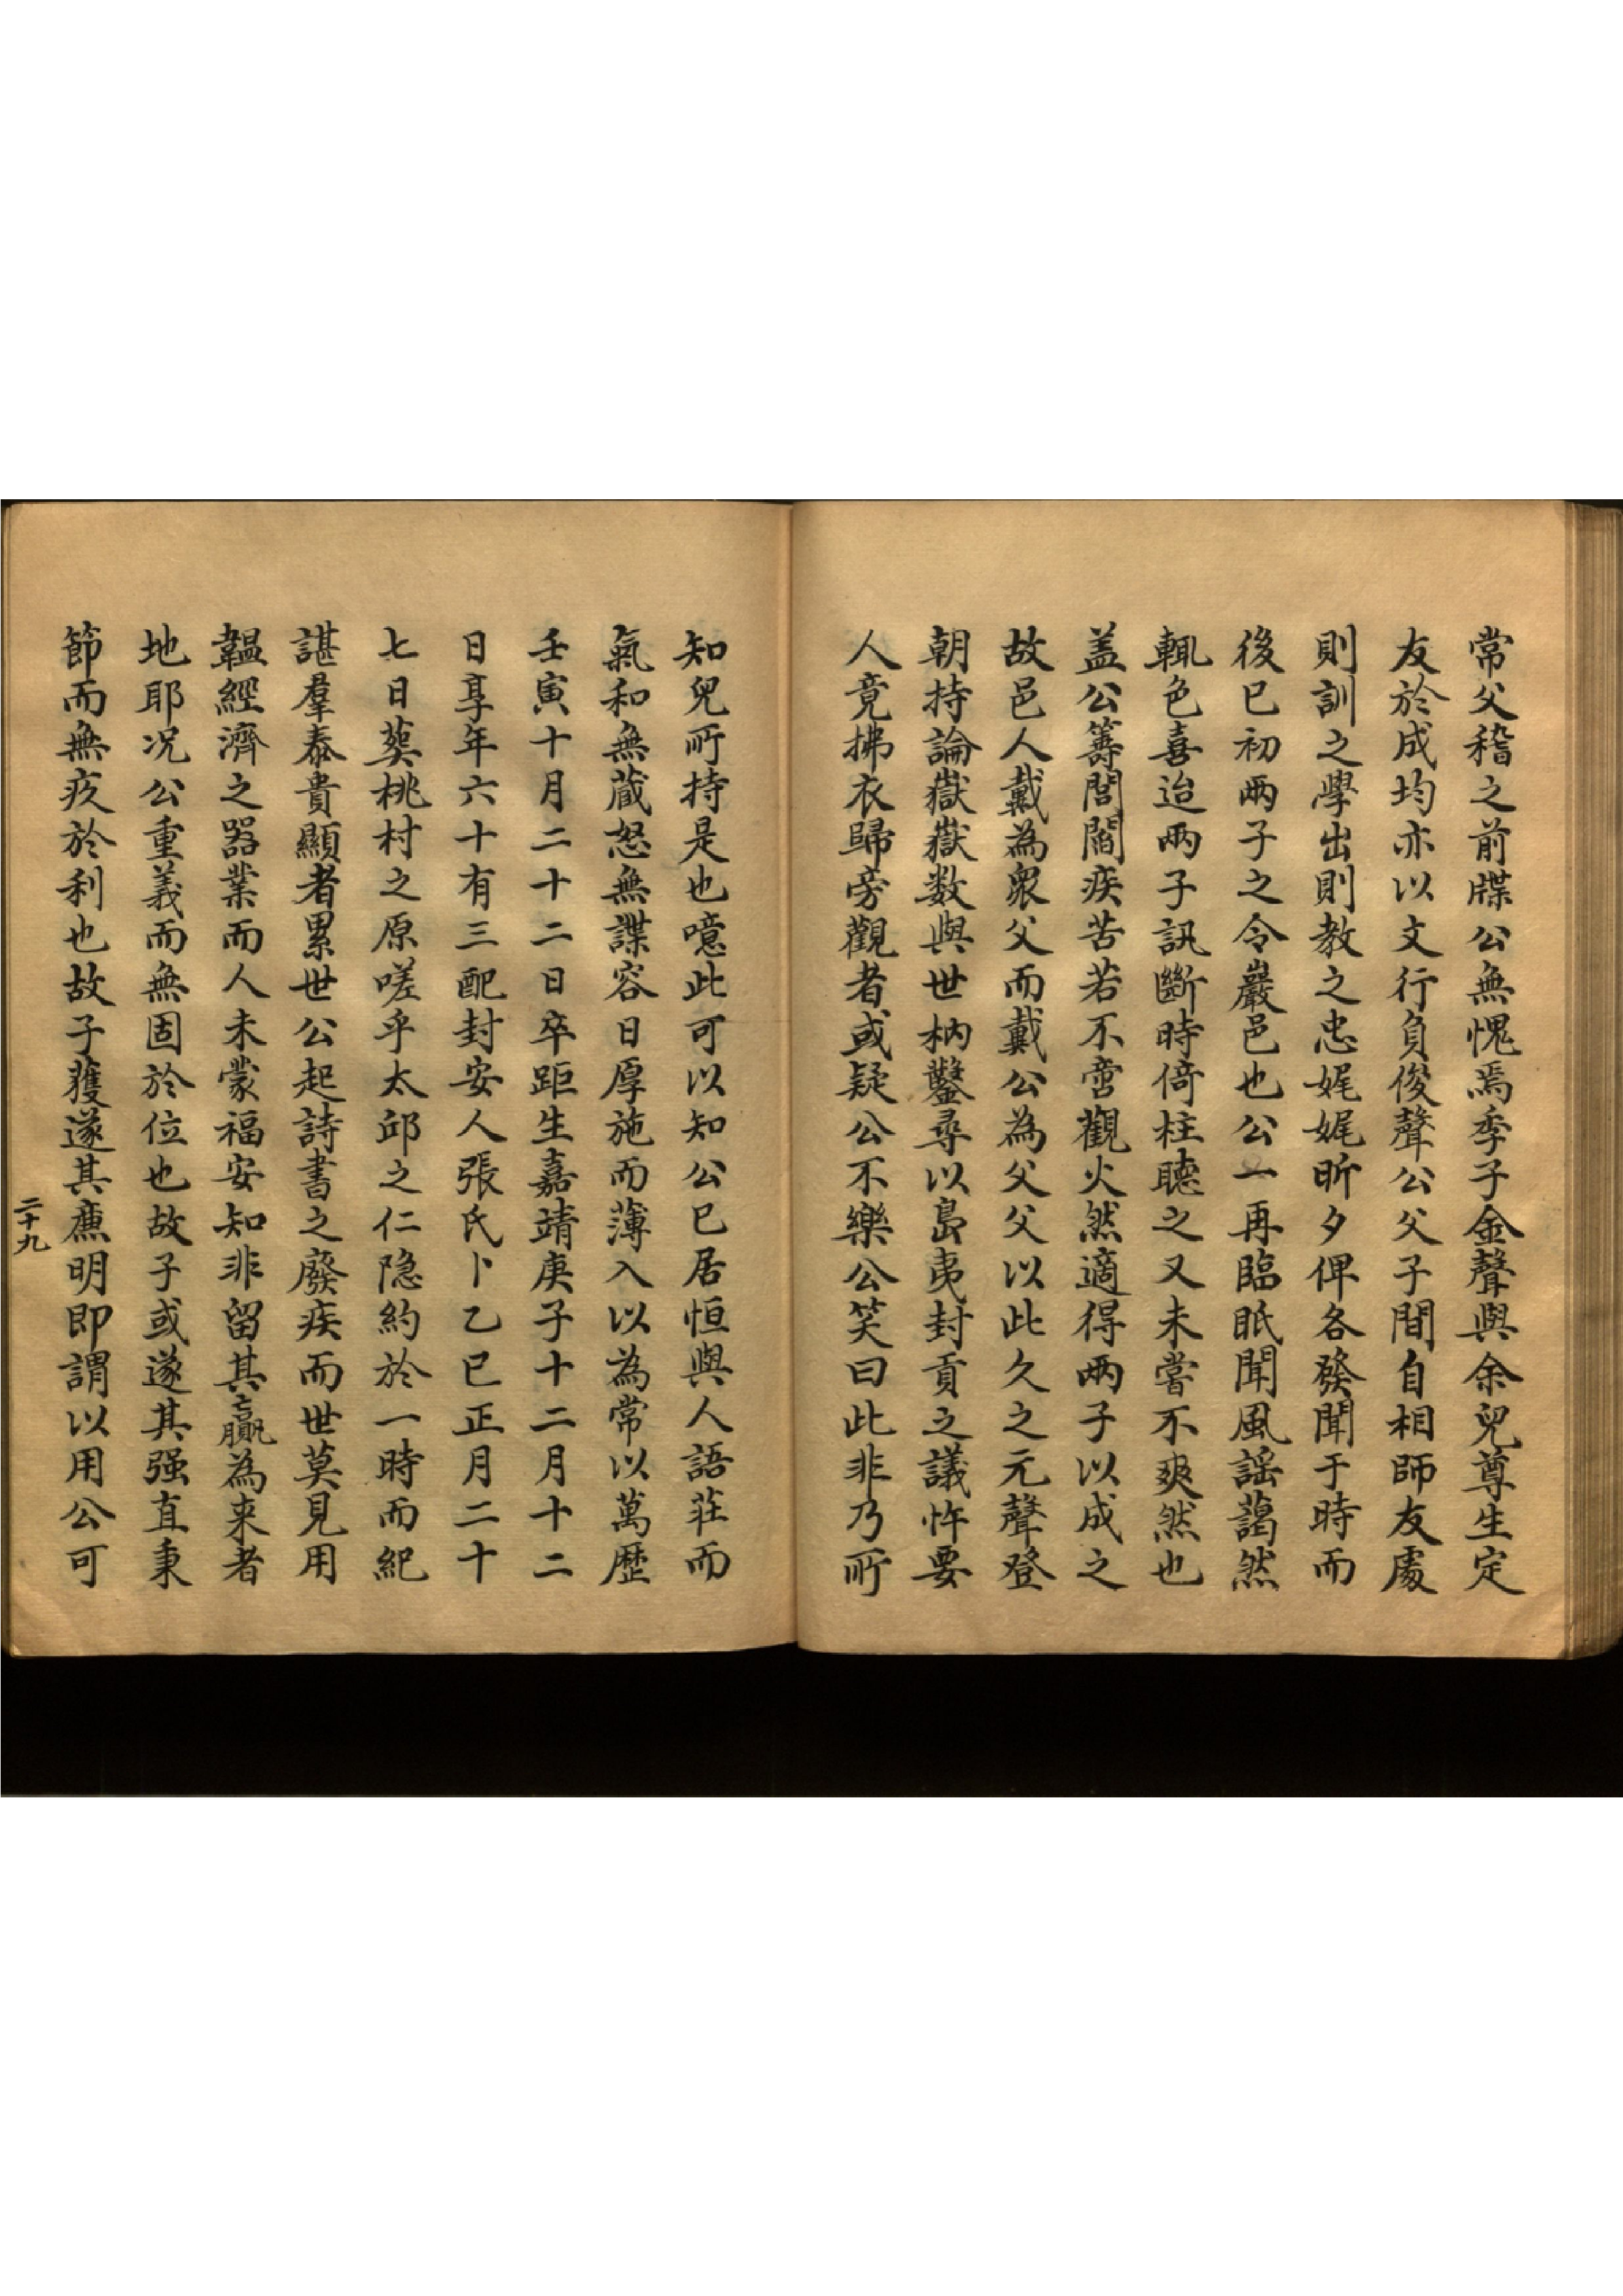 常父稽之前牒公無愧焉季子金聲與余兒尊生定
友於成均亦以文行負俊聲公父子間自相師友處
則訓之學出則教之忠娓娓昕夕俾各發聞于時而
後已初兩子之令巖邑也公一再臨眂聞風謡藹然
輒色喜迨兩子訊斷時倚柱聽之又未嘗不爽然也
盖公籌閭閻疾苦若不啻觀火然適得兩子以成之
故邑人戴為衆父而戴公為父父以此久之元聲登
朝持論嶽嶽数與世枘鑿尋以島夷封貢之議忤要
人竟拂衣歸旁觀者或疑公不樂公笑曰此非乃所
知兒所持是也噫此可以知公已居恒與人語莊而
氣和無蔵怒無諜容日厚施而薄入以為常以萬歷
壬寅十月二十二日卒距生嘉靖庚子十二月十二
日享年六十有三配封安人張氏卜乙巳正月二十
七日葬桃村之原嗟乎太邱之仁隐約於一時而紀
諶羣泰貴顯者累世公起詩書之廢疾而世莫見用
韞經濟之器業而人未蒙福安知非留其贏為来者
地耶况公重義而無固於位也故子或遂其强直秉
節而無疚於利也故子獲遂其廉明即謂以用公可
二十九